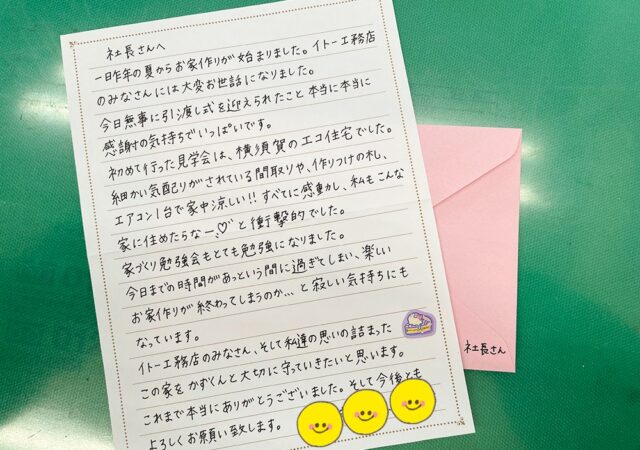 社長さんへ
一昨年の夏からお家作りが始まりました。イトー工務店
のみなさんには大変お世話になりました。
今日無事に引渡し式を迎えられたこと本当に本当に
感謝の気持ちでいっぱいです。
初めて行った見学会は、横須賀のエコ住宅でした。
細かい気配りがされている間取りや、作りつけの札、
エアコン1台で家中涼しい!!すべてに感動し、私もこんな
家に住めたらなー♡と衝撃的でした。
家づくり勉強会もとても勉強になりました。
今日までの時間があっという間に過ぎてしまい、楽しい
お家作りが終わってしまうのか...と寂しい気持ちにも
なっています。
イトー工務店のみなさん、そして私達の思いの詰まった
この家をかずくんと大切に守っていきたいと思います。
これまで本当にありがとうございました。そして今後とも
よろしくお願い致します。
社長さん